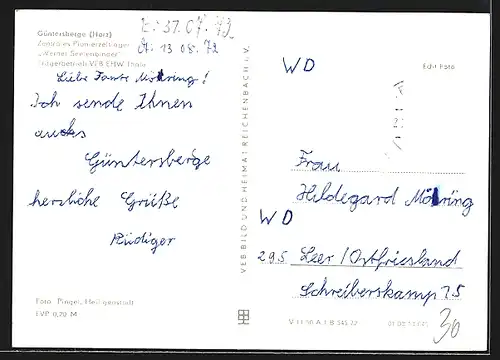 Güntersberge (Harz)
Zentrales Pionierzeltlager
„Werner Seelenbinder"
Trägerbetrieb VEB EHW Thale
E: 31.07.72
A: 13 08. 72
Liebe Tante Möhring!
Ich sende Ihnen
aus
Güntersberge
herzliche Grüße
Rüdiger
Foto: Pingel, Heiligenstadt
EVP 0,20 M
VEB BILD UND HEIMAT REICHENBACH i. V.
WD
Echt Foto
Frau
Hildegard Möhring
WD
295 Leer/Ostfriesland
Schreiberskamp 25
30